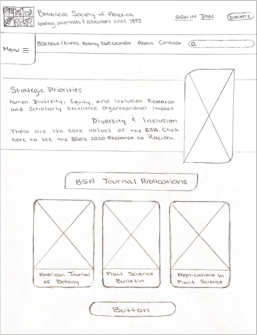 Botanical Society of America
leading scientists & educators since 1893
SIGN IN JOIN
DONATE
Menu
Botany Calendar About Contact
Strategic Priorities
Human Diversity, Equity, and Inclusion Research
and Scholarly Excellence Organizational Impact
Diversity & Inclusion
These are the core values of the BSA. Click
here to see the BSA's 2020 Response to Racism.
BSA Journal Publications
American Journal
of Botany
Plant Science
Bulletin
Applications in
Plant Science
Button